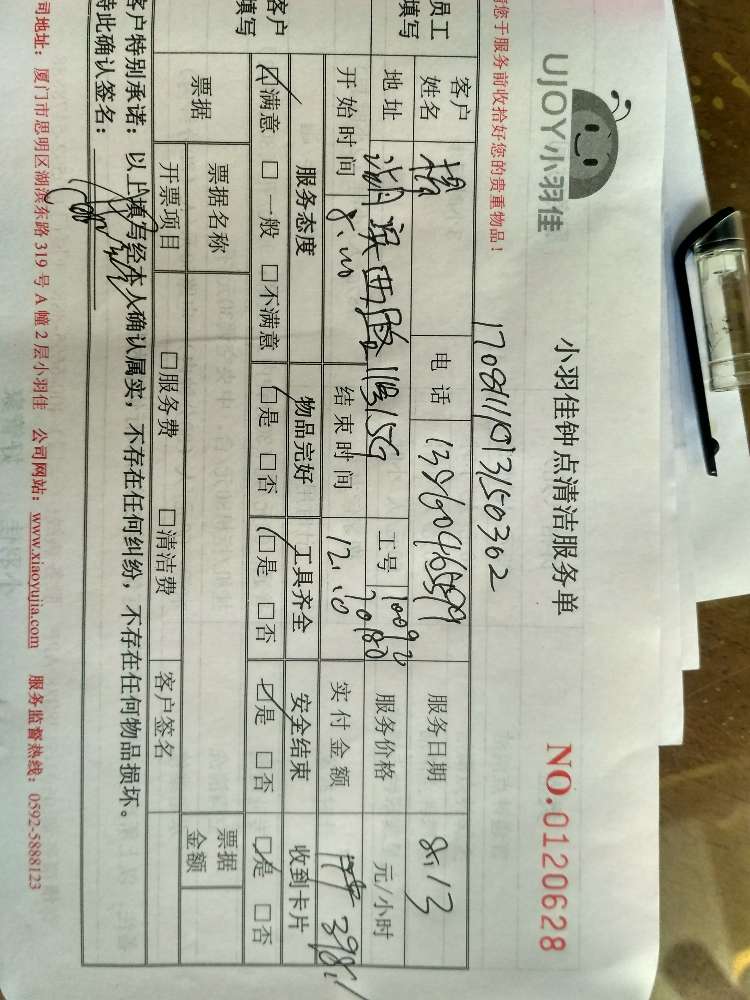 UJOY小羽佳
小羽佳钟点清洁服务单
NO.0120628
您于服务前收拾好您的贵重物品！
员工填写
客户姓名 杨 电话 服务日期 8.13
地址 工号 服务价格 元/小时
开始时间 结束时间 12.10 实付金额
客户填写
服务态度 物品完好 工具齐全 安全结束 收到卡片
☑满意 □一般 □不满意 ☑是 □否 ☑是 □否 ☑是 □否 ☑是 □否
票据 票据名称 票据金额
开票项目 □服务费 □清洁费 客户签名
客户特别承诺：以上填写经本人确认属实，不存在任何纠纷，不存在任何物品损坏。
特此确认签名：
司地址：厦门市思明区湖滨东路 319 号 A 幢 2 层小羽佳 公司网站：www.xiaoyujia.com 服务监督热线：0592-5888123